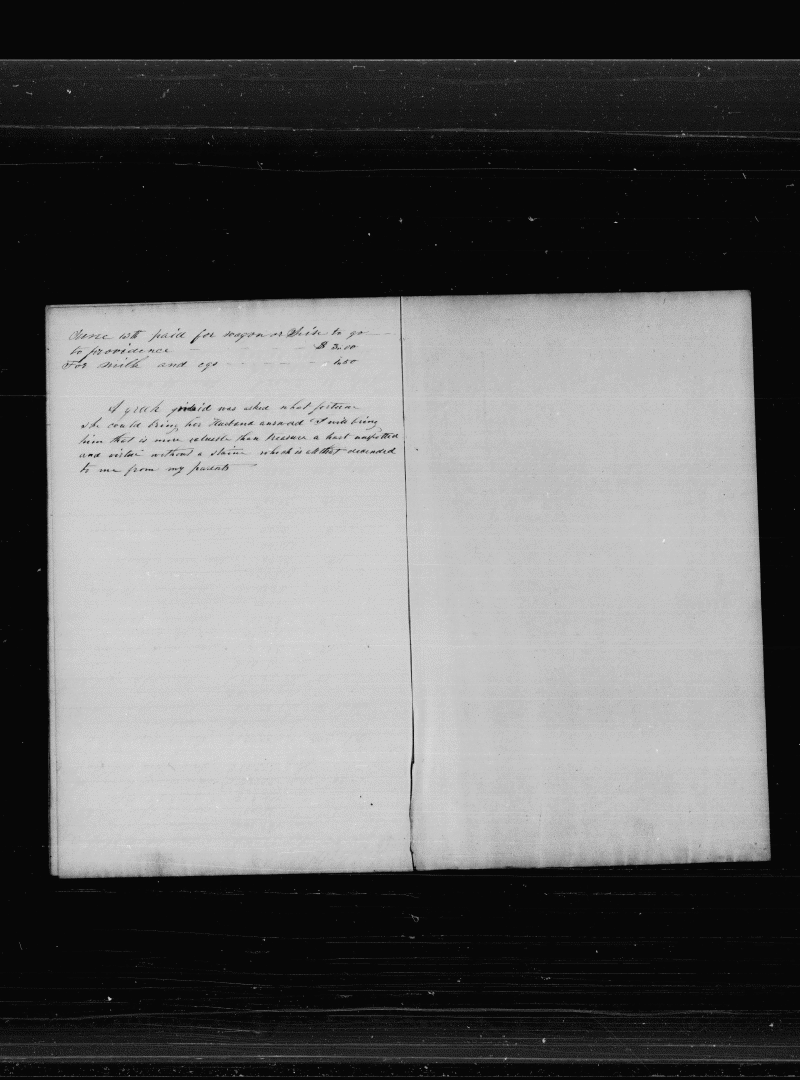 June 15th paid for wagon or to go
to providence $ 3.00
For milk and egs 1.50
A greek maid was asked what fortune
she could bring her Husband answard "I will bring
him that is more valueble than treasure a hart unspotted
and virtue without a staine which is all that decended
to me from my parents